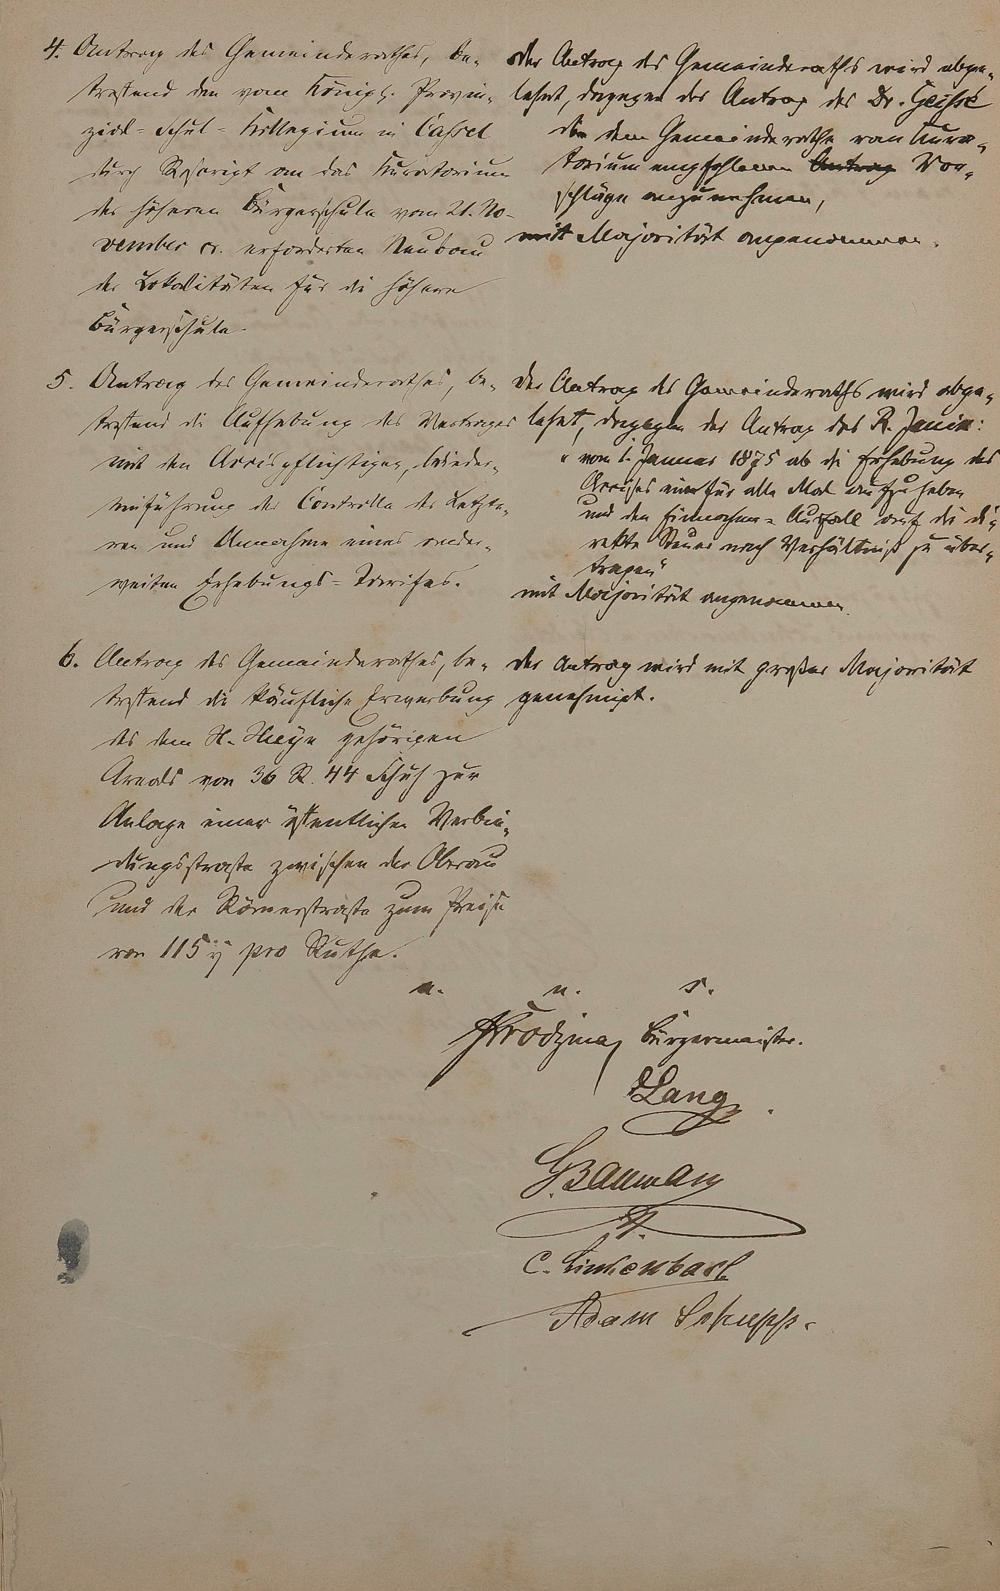 4. Antrag des Gemeinderathes, be-
treffend den vom Königl. Provin-
zial-Schul-Kollegium in Cassel
durch Rescript an das Kuratorium
der höheren Bürgerschule vom 21. No-
vember cr. erforderten Neubau
der Lokalitäten für die höhere
Bürgerschule.
der Antrag des Gemeinderaths wird abge-
lehnt, dagegen der Antrag des Dr. Geisse
die dem Gemeinderathe vom Kura-
torium empfohlenen Antrag Vor-
schläge anzunehmen,
mit Majorität angenommen.
5. Antrag des Gemeinderathes, be-
treffend die Aufhebung des Vertrages
mit den Accispflichtigen, Wieder-
einführung der Controlle der Letzte-
ren und Annahme eines ander-
weiten Erhebungs-Tarifes.
der Antrag des Gemeinderaths wird abge-
lehnt, dagegen der Antrag des R. Janin:
" vom 1. Januar 1875 ab die Erhebung des
Accises ein für alle Mal aufzuheben
und den Einnahme-Ausfall auf die di-
rekte Steuer nach Verhältniß zu über-
tragen"
mit Majorität angenommen.
6. Antrag des Gemeinderathes, be-
treffend die käufliche Erwerbung
des dem H. gehörigen
Areals von 36 R. 44 Schuh zur
Anlage einer öffentlichen Verbin-
dungsstraße zwischen der Oberau
und der Römerstraße zum Preise
von 115 pro Ruthe.
der Antrag wird mit großer Majorität
genehmigt.
a. u. s.
Bürgermeister.
Lang
G. Ballmann
C. Linkenbach
Adam Schupp.